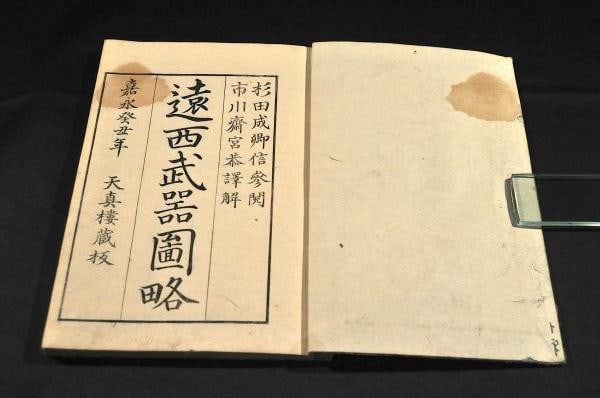 杉田成卿信參閲
市川齋宮恭譯解
遠西武器圖略
嘉永癸丑年 天真樓蔵板